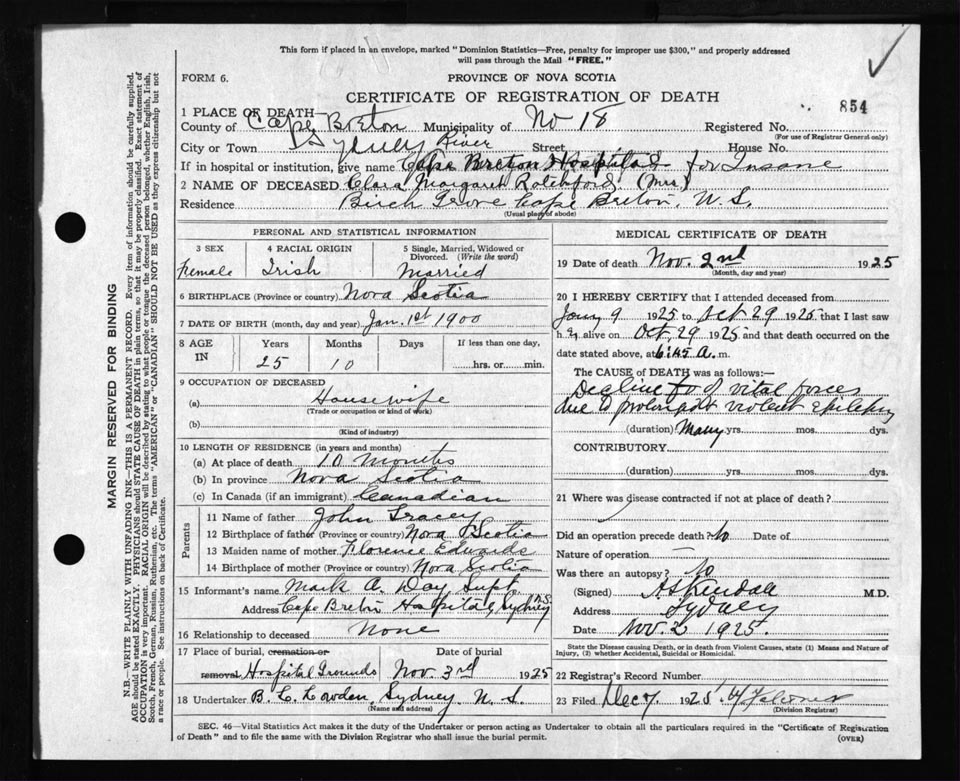 This form if placed in an envelope, marked "Dominion Statistics—Free, penalty for improper use $300," and properly addressed
will pass through the Mail "FREE."
FORM 6.
PROVINCE OF NOVA SCOTIA
CERTIFICATE OF REGISTRATION OF DEATH
854
1 PLACE OF DEATH
County of Cape Breton Municipality of No 18 Registered No.
(For use of Registrar General only)
City or Town Sydney River Street House No.
If in hospital or institution, give name Cape Breton Hospital for Insane
2 NAME OF DECEASED Clara Margaret Ratchford (Mrs)
Residence Birch Grove Cape Breton, N.S.
(Usual place of abode)
PERSONAL AND STATISTICAL INFORMATION
3 SEX 4 RACIAL ORIGIN 5 Single, Married, Widowed or Divorced. (Write the word)
Female Irish Married
6 BIRTHPLACE (Province or country) Nova Scotia
7 DATE OF BIRTH (month, day and year) Jan. 1st 1900
8 AGE IN Years Months Days If less than one day,
25 10 hrs. or min.
9 OCCUPATION OF DECEASED
(a) Housewife
(Trade or occupation or kind of work)
(b)
(Kind of industry)
10 LENGTH OF RESIDENCE (in years and months)
(a) At place of death 10 months
(b) In province Nova Scotia
(c) In Canada (if an immigrant) Canadian
Parents
11 Name of father John Tracey
12 Birthplace of father (Province or country) Nova Scotia
13 Maiden name of mother Florence Edwards
14 Birthplace of mother (Province or country) Nova Scotia
15 Informant's name Mark A. Day Supt.
Address Cape Breton Hospital, Sydney N.S.
16 Relationship to deceased None
17 Place of burial, cremation or removal Date of burial
Hospital Grounds Nov. 3rd 1925
18 Undertaker B. C. Sydney N. S.
(Name and address)
MEDICAL CERTIFICATE OF DEATH
19 Date of death Nov. 2nd 1925
(Month, day and year)
20 I HEREBY CERTIFY that I attended deceased from
Jany 9 1925 to Oct 29 1925 that I last saw
h er alive on Oct. 29 1925 and that death occurred on
date stated above, at 6:45 A. m.
The CAUSE of DEATH was as follows:
Decline of vital forces
due to prolonged violent Epilepsy
(duration) Many yrs. mos. dys.
CONTRIBUTORY.
(duration) yrs. mos. dys.
21 Where was disease contracted if not at place of death?
Did an operation precede death? No Date of
Nature of operation —
Was there an autopsy? No
(Signed) A S Kendall M.D.
Address Sydney
Date Nov. 2 1925.
State the Disease causing Death, or in death from Violent Causes, state (1) Means and Nature of Injury, (2) whether Accidental, Suicidal or Homicidal.
22 Registrar's Record Number
23 Filed Dec 7. 1925
(Division Registrar)
SEC. 46—Vital Statistics Act makes it the duty of the Undertaker or person acting as Undertaker to obtain all the particulars required in the "Certificate of Registration
of Death" and to file the same with the Division Registrar who shall issue the burial permit.
(OVER)
MARGIN RESERVED FOR BINDING
N.B.—WRITE PLAINLY WITH UNFADING INK—THIS IS A PERMANENT RECORD. Every item of information should be carefully supplied.
AGE should be stated EXACTLY. PHYSICIANS should STATE CAUSE OF DEATH in plain terms, so that it may be properly classified. Exact statement of
OCCUPATION is very important. RACIAL ORIGIN will be described by stating to what people or tongue the deceased person belonged, whether English, Irish,
Scotch, French, German, Russian, Ruthenian, etc. The terms "AMERICAN" or "CANADIAN" SHOULD NOT BE USED as they express citizenship but not
a race or people. See instructions on back of Certificate.